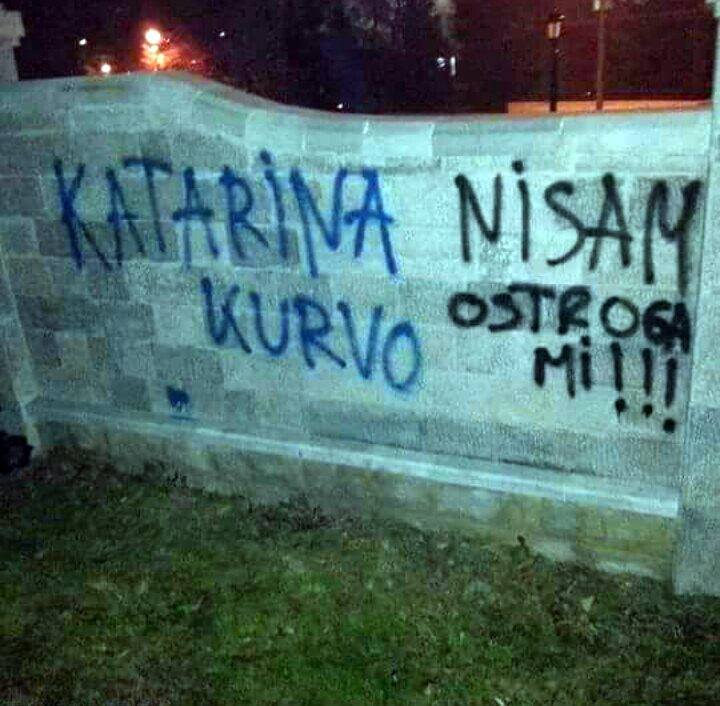 KATARINA
KURVO
NISAM
OSTROGA
MI!!!